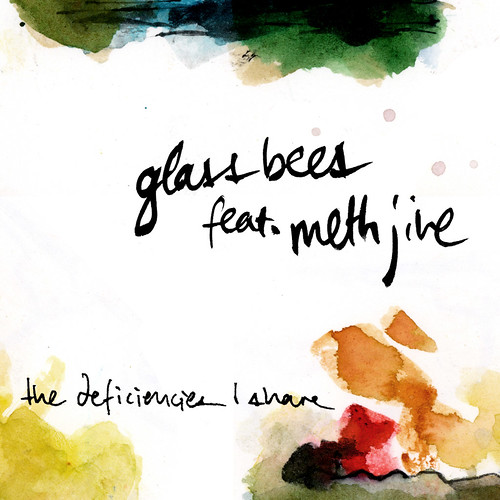 glass bees
feat. meth jive
the deficiencies I share